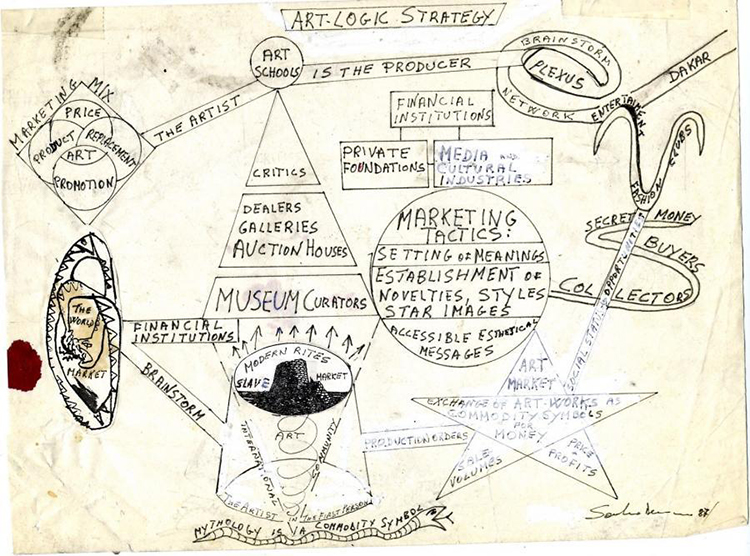 ART-LOGIC STRATEGY
ART
SCHOOLS
IS THE PRODUCER
THE ARTIST
BRAINSTORM
PLEXUS
NETWORK
DAKAR
MARKETING MIX
PRICE
PRODUCT
REPLACEMENT
ART
PROMOTION
FINANCIAL
INSTITUTIONS
PRIVATE
FOUNDATIONS
MEDIA AND
CULTURAL
INDUSTRIES
ENTERTAIMENT
FASHION CLUBS
CRITICS
DEALERS
GALLERIES
AUCTION HOUSES
MUSEUM CURATORS
MARKETING
TACTICS:
SETTING OF MEANINGS
ESTABLISHMENT OF
NOVELTIES, STYLES
STAR IMAGES
ACCESSIBLE ESTHETICAL
MESSAGES
SECRET MONEY
BUYERS
COLLECTORS
SOCIAL STATUS OPPORTUNITIES
THE WORLD
MARKET
FINANCIAL
INSTITUTIONS
BRAINSTORM
MODERN RITES
SLAVE MARKET
ART
INTERNATIONAL
COMMUNITY
THE ARTIST IN THE FIRST PERSON
PRODUCTION ORDERS
ART
MARKET
EXCHANGE OF ART-WORKS AS
COMMODITY SYMBOLS
FOR
MONEY
SALE
VOLUMES
PRICE
PROFITS
MYTHOLOGY IS A COMMODITY SYMBOL
87